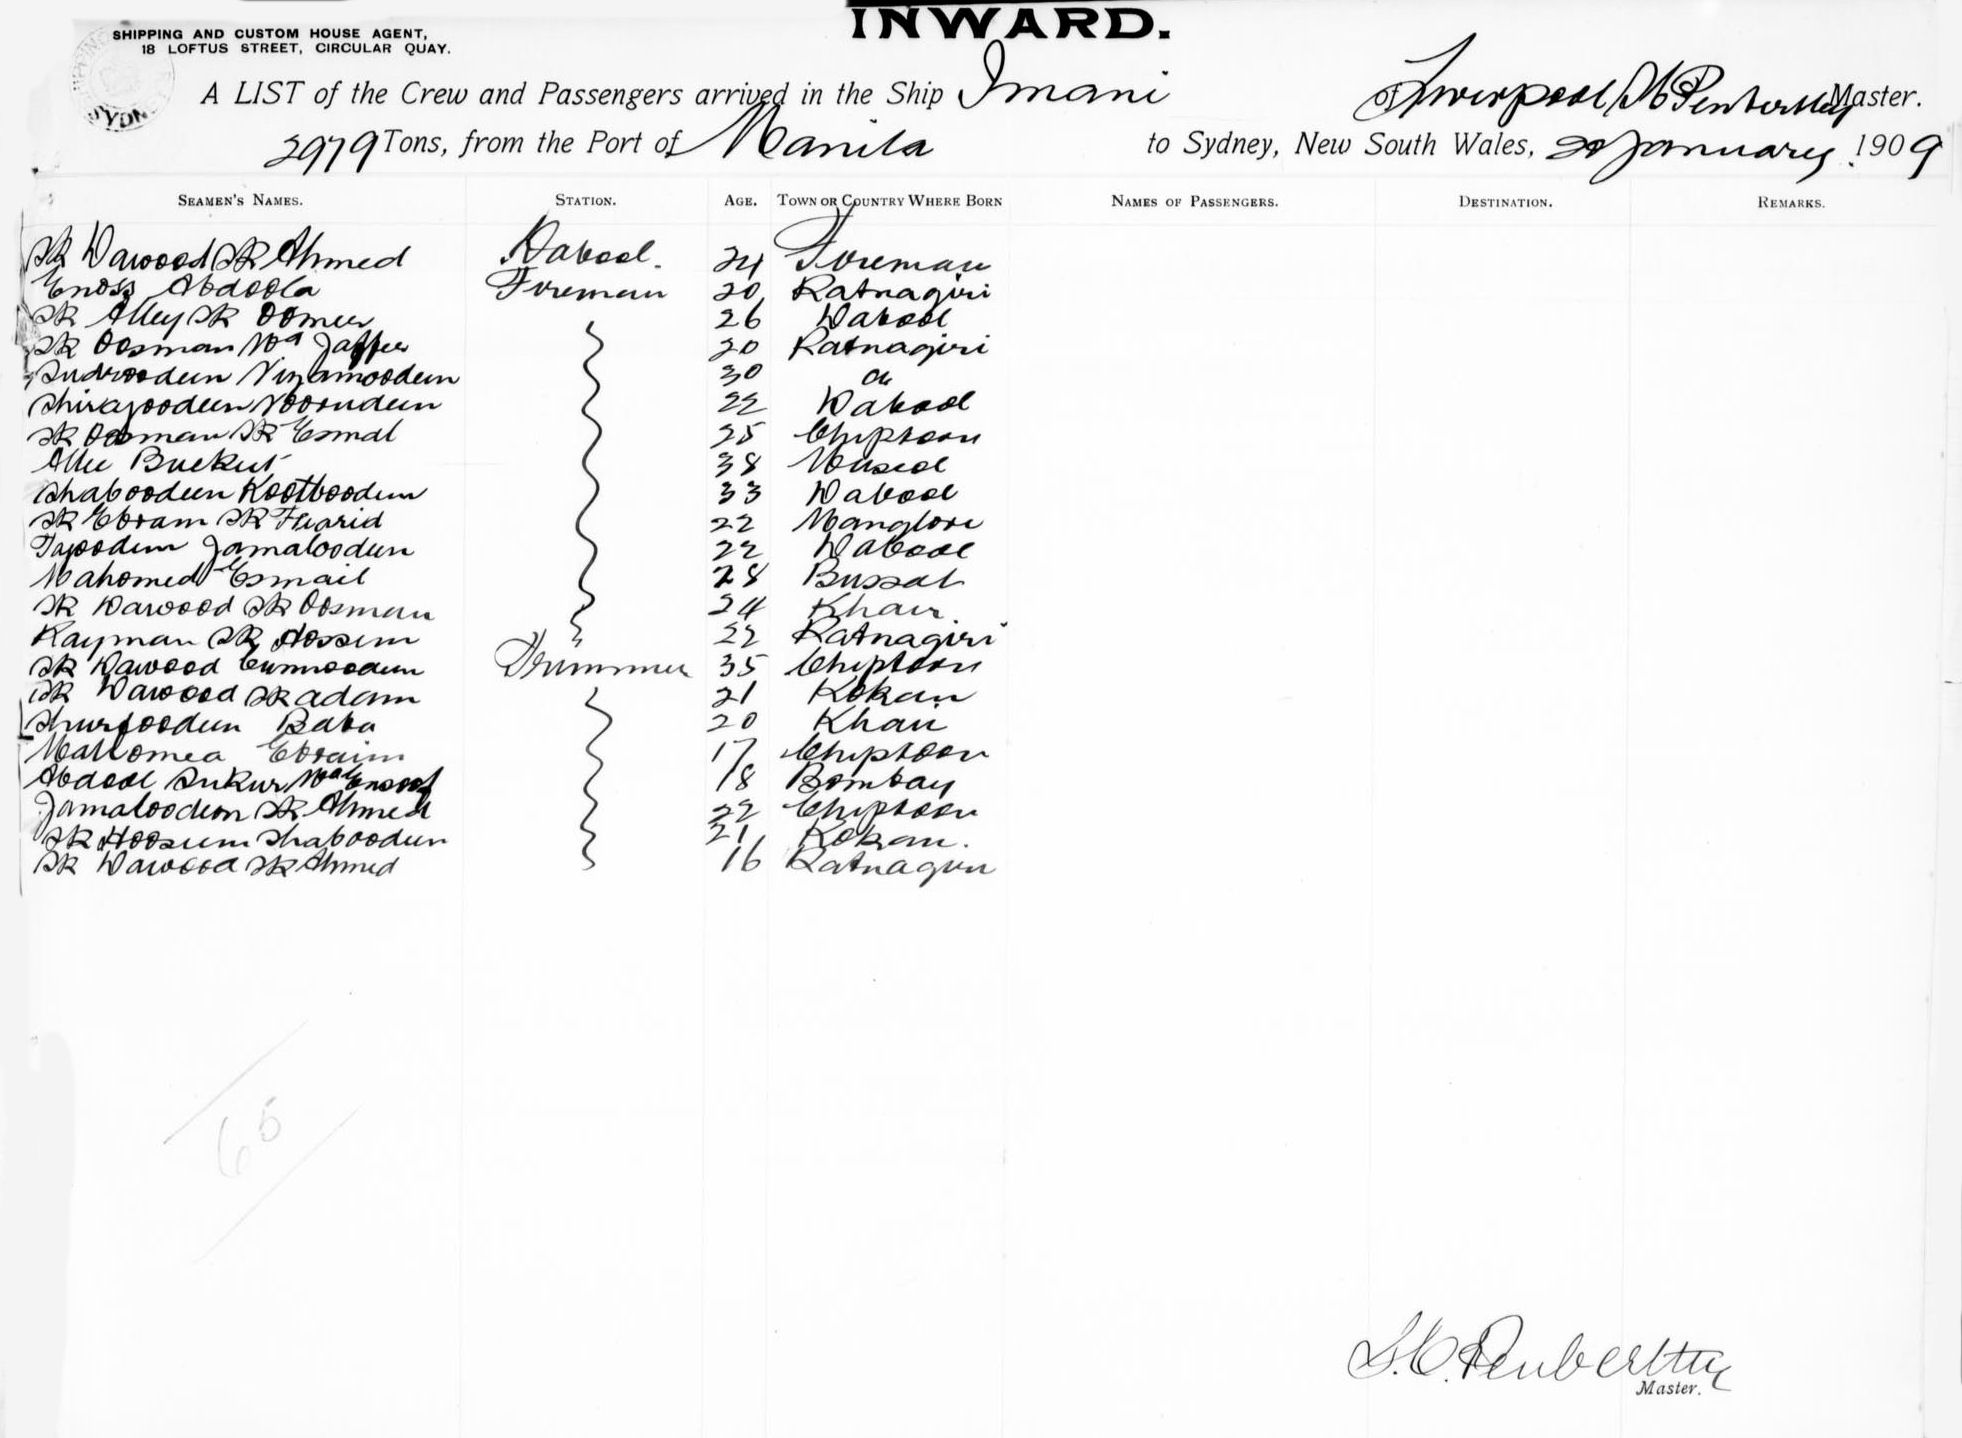 INWARD.
SHIPPING AND CUSTOM HOUSE AGENT,
18 LOFTUS STREET, CIRCULAR QUAY.
A LIST of the Crew and Passengers arrived in the Ship Imani of Liverpool, Penberthy Master.
2979 Tons, from the Port of Manila to Sydney, New South Wales, 20 January 1909
SEAMEN'S NAMES. STATION. AGE. TOWN OR COUNTRY WHERE BORN NAMES OF PASSENGERS. DESTINATION. REMARKS.
Sk Dawood Sk Ahmed Dabool. 24 Fireman
Enoss Abdoola Fireman 20 Ratnagiri
Sk Alley Sk Oomer 26 Dabool
Sk Oosman Md Jaffer 20 Ratnagiri
Sudroodeen Nizamoodeen 30 do
Shirajoodeen Noorudeen 22 Dabool
Sk Oosman Sk Esmal 25 Chiploon
Allee Buckus 38
Shaboodeen Kootboodeen 33 Dabool
Sk Ebram Sk Fharid 22 Manglore
Tajoodeen Jamaloodeen 22 Dabool
Mahomed Esmail 28
Sk Dawood Sk Oosman 24 Khair
Rayman Sk Hossein 22 Ratnagiri
Sk Dawood Trimmer 35 Chiploon
Sk Dawood Sk adam 21 Kokan
Shurfoodeen Baba 20 Khair
Mahomed Ebraim 17 Chiploon
Abdool Sukur 18 Bombay
Jamaloodeen Sk Ahmed 22 Chiploon
Sk Hooseen Shaboodeen 21 Kokan.
Sk Dawood Sk Ahmed 16 Ratnagiri
65
Penberthy
Master.